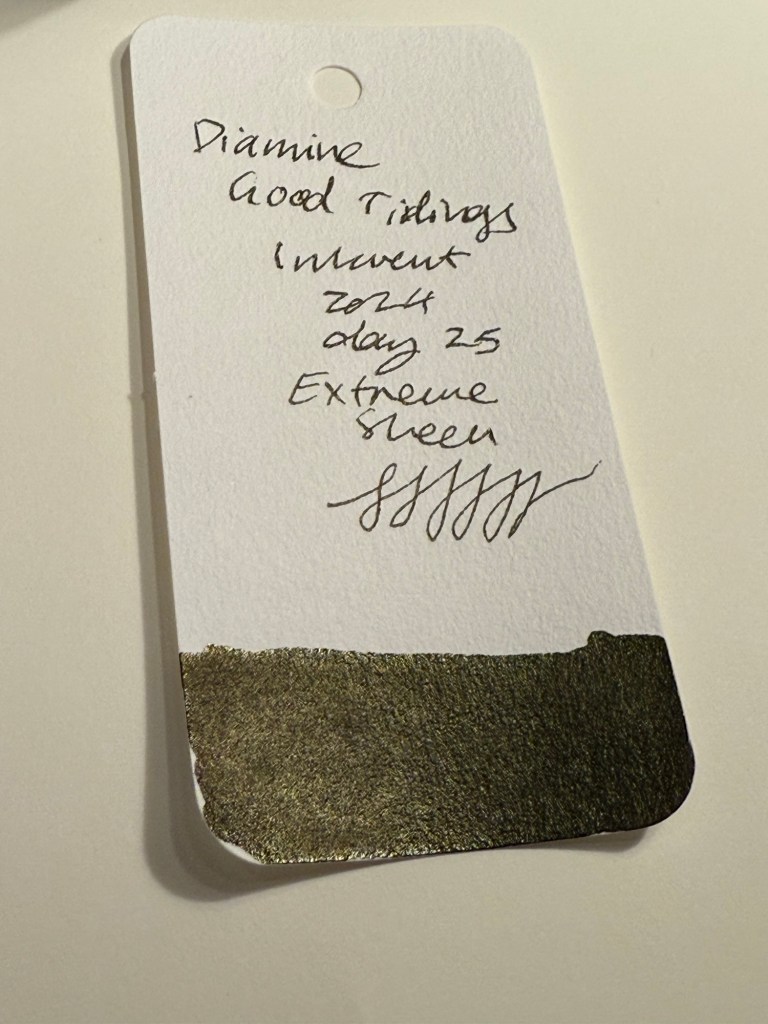 Diamine
Good Tidings
Inkvent
2024
day 25
Extreme
Sheen